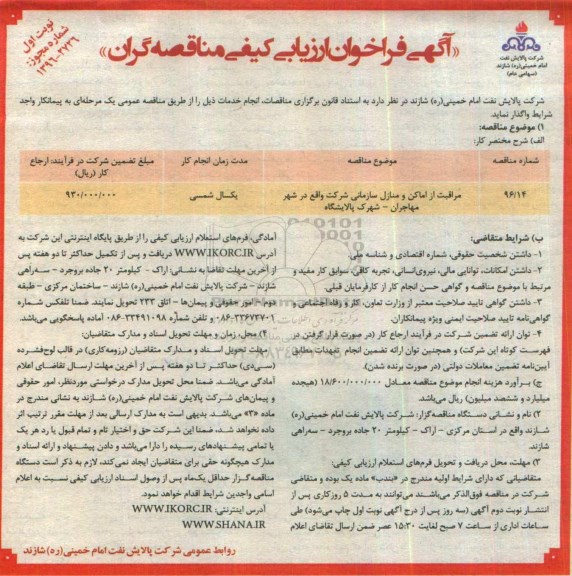 نوبت اول
شماره مجوز:
۱۳۹۶-۲۷۲۶
شرکت پالایش نفت
امام خمینی(ره) شازند
(سهامی عام)
«آگهی فراخوان ارزیابی کیفی مناقصه گران»
شرکت پالایش نفت امام خمینی(ره) شازند در نظر دارد به استناد قانون برگزاری مناقصات، انجام خدمات ذیل را از طریق مناقصه عمومی یک مرحله‌ای به پیمانکار واجد
شرایط واگذار نماید.
۱) موضوع مناقصه:
الف) شرح مختصر کار:
شماره مناقصه موضوع مناقصه مدت زمان انجام کار مبلغ تضمین شرکت در فرآیند؛ ارجاع
کار (ریال)
۹۶/۱۴ مراقبت از اماکن و منازل سازمانی شرکت واقع در شهر یکسال شمسی ۹۳۰/۰۰۰/۰۰۰
مهاجران – شهرک پالایشگاه
ب) شرایط متقاضی:
۱- داشتن شخصیت حقوقی، شماره اقتصادی و شناسه ملی.
۲- داشتن امکانات، توانایی مالی، نیروی‌انسانی، تجربه کافی، سوابق کار مفید و
مرتبط با موضوع مناقصه و گواهی حسن انجام کار از کارفرمایان قبلی.
۳- داشتن گواهی تایید صلاحیت معتبر از وزارت تعاون، کار و رفاه اجتماعی و
گواهی‌نامه تایید صلاحیت ایمنی ویژه پیمانکاران.
۴- توان ارائه تضمین شرکت در فرآیند ارجاع کار (در صورت قرار گرفتن در
فهرست کوتاه این شرکت) و همچنین توان ارائه تضمین انجام تعهدات مطابق
آیین‌نامه تضمین معاملات دولتی (در صورت برنده شدن).
ج) برآورد هزینه انجام موضوع مناقصه معادل ۱۸/۶۰۰/۰۰۰/۰۰۰ (هیجده
میلیارد و ششصد میلیون) ریال می‌باشد.
۲) نام و نشانی دستگاه مناقصه‌گزار: شرکت پالایش نفت امام خمینی(ره)
شازند واقع در استان مرکزی – اراک – کیلومتر ۲۰ جاده بروجرد – سه‌راهی
شازند.
۳) مهلت، محل دریافت و تحویل فرم‌های استعلام ارزیابی کیفی:
متقاضیانی که دارای شرایط اولیه مندرج در «بندب» ماده یک بوده و متقاضی
شرکت در مناقصه فوق‌الذکر می‌باشند می‌توانند به مدت ۵ روزکاری پس از
انتشار نوبت دوم آگهی (سه روز پس از درج آگهی نوبت اول چاپ می‌شود) طی
ساعات اداری از ساعت ۷ صبح لغایت ۱۵:۳۰ عصر ضمن ارسال تقاضای اعلام
آمادگی، فرم‌های استعلام ارزیابی کیفی را از طریق پایگاه اینترنتی این شرکت به
آدرس WWW.IKORC.IR دریافت و پس از تکمیل حداکثر تا دو هفته پس
از آخرین مهلت تقاضا به نشانی: اراک – کیلومتر ۲۰ جاده بروجرد – سه‌راهی
شازند – شرکت پالایش نفت امام خمینی(ره) شازند – ساختمان مرکزی – طبقه
دوم – امور حقوقی و پیمان‌ها – اتاق ۲۳۳ تحویل نمایند. ضمنا تلفکس شماره
۰۸۶-۳۳۶۷۳۷۰۱ و تلفن شماره ۰۸۶-۳۳۴۹۱۰۹۸ آماده پاسخگویی می‌باشد.
۴) محل، زمان و مهلت تحویل اسناد و مدارک متقاضیان:
مهلت تحویل اسناد و مدارک متقاضیان (رزومه‌کاری) در قالب لوح‌فشرده
(سی‌دی) حداکثر تا دو هفته پس از آخرین مهلت ارسال تقاضای اعلام
آمادگی می‌باشد. ضمنا محل تحویل مدارک درخواستی موردنظر، امور حقوقی
و پیمان‌های شرکت پالایش نفت امام خمینی(ره) شازند به نشانی مندرج در
ماده «۳» می‌باشد. بدیهی است به مدارک ارسالی بعد از مهلت مقرر ترتیب اثر
داده نخواهد شد، ضمنا این شرکت حق و اختیار تام و تمام قبول یا رد هر یک
یا تمامی پیشنهادهای رسیده را دارا می‌باشد و دادن پیشنهاد و ارائه اسناد و
مدارک هیچگونه حقی برای متقاضیان ایجاد نمی‌کند، لازم به ذکر است دستگاه
مناقصه‌گزار حداقل یک‌ماه پس از وصول اسناد ارزیابی کیفی نسبت به اعلام
اسامی واجدین شرایط اقدام خواهد نمود.
آدرس اینترنتی: WWW.IKORC.IR
WWW.SHANA.IR
روابط عمومی شرکت پالایش نفت امام خمینی(ره) شازند